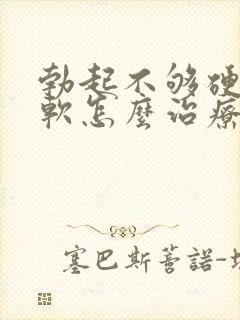 勃起不够硬
軟怎麽治療
塞巴斯蒂諾-坎